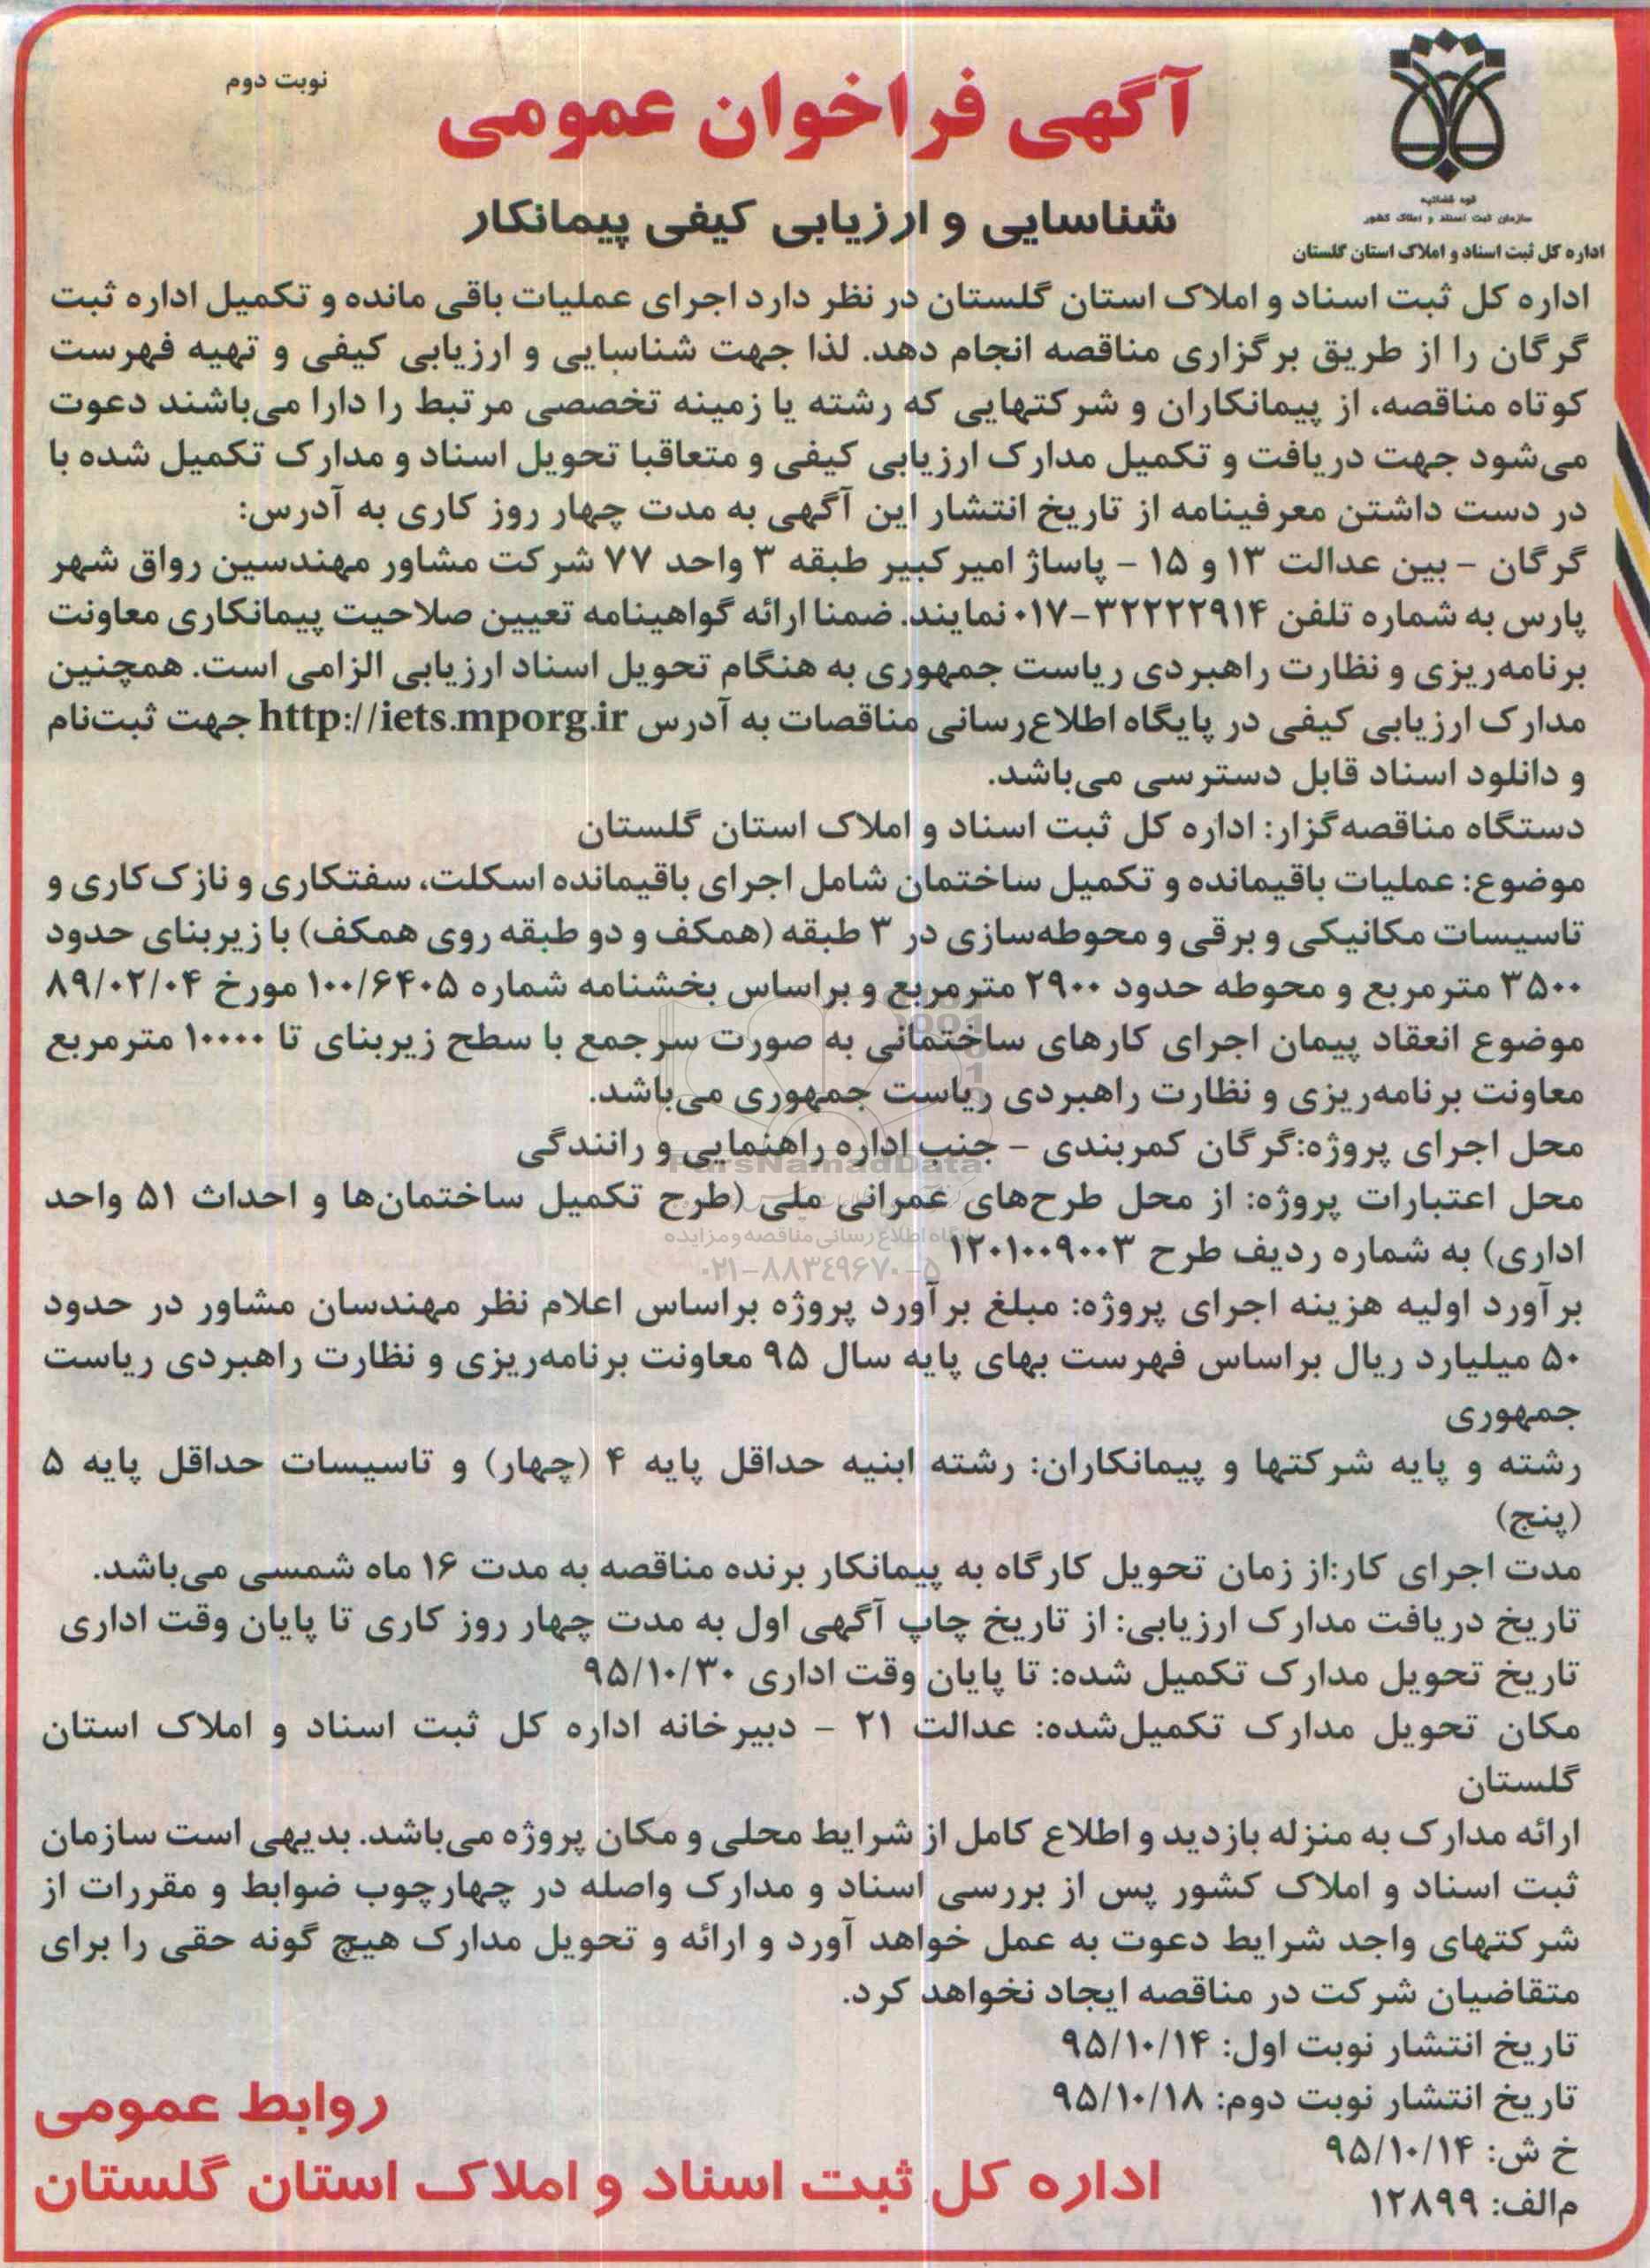 نوبت دوم
آگهی فراخوان عمومی
شناسایی و ارزیابی کیفی پیمانکار
قوه قضائیه
سازمان ثبت اسناد و املاک کشور
اداره کل ثبت اسناد و املاک استان گلستان
اداره کل ثبت اسناد و املاک استان گلستان در نظر دارد اجرای عملیات باقی مانده و تکمیل اداره ثبت
گرگان را از طریق برگزاری مناقصه انجام دهد. لذا جهت شناسایی و ارزیابی کیفی و تهیه فهرست
کوتاه مناقصه، از پیمانکاران و شرکتهایی که رشته یا زمینه تخصصی مرتبط را دارا می‌باشند دعوت
می‌شود جهت دریافت و تکمیل مدارک ارزیابی کیفی و متعاقبا تحویل اسناد و مدارک تکمیل شده با
در دست داشتن معرفینامه از تاریخ انتشار این آگهی به مدت چهار روز کاری به آدرس:
گرگان - بین عدالت ۱۳ و ۱۵ - پاساژ امیرکبیر طبقه ۳ واحد ۷۷ شرکت مشاور مهندسین رواق شهر
پارس به شماره تلفن ۳۲۲۲۲۹۱۴-۰۱۷ نمایند. ضمنا ارائه گواهینامه تعیین صلاحیت پیمانکاری معاونت
برنامه‌ریزی و نظارت راهبردی ریاست جمهوری به هنگام تحویل اسناد ارزیابی الزامی است. همچنین
مدارک ارزیابی کیفی در پایگاه اطلاع‌رسانی مناقصات به آدرس http://iets.mporg.ir جهت ثبت‌نام
و دانلود اسناد قابل دسترسی می‌باشد.
دستگاه مناقصه‌گزار: اداره کل ثبت اسناد و املاک استان گلستان
موضوع: عملیات باقیمانده و تکمیل ساختمان شامل اجرای باقیمانده اسکلت، سفتکاری و نازک‌کاری و
تاسیسات مکانیکی و برقی و محوطه‌سازی در ۳ طبقه (همکف و دو طبقه روی همکف) با زیربنای حدود
۳۵۰۰ مترمربع و محوطه حدود ۲۹۰۰ مترمربع و براساس بخشنامه شماره ۱۰۰/۶۴۰۵ مورخ ۸۹/۰۲/۰۴
موضوع انعقاد پیمان اجرای کارهای ساختمانی به صورت سرجمع با سطح زیربنای تا ۱۰۰۰۰ مترمربع
معاونت برنامه‌ریزی و نظارت راهبردی ریاست جمهوری می‌باشد.
محل اجرای پروژه:گرگان کمربندی - جنب اداره راهنمایی و رانندگی
ParsNamadData
محل اعتبارات پروژه: از محل طرح‌های عمرانی ملی (طرح تکمیل ساختمان‌ها و احداث ۵۱ واحد
پایگاه اطلاع رسانی مناقصه و مزایده
اداری) به شماره ردیف طرح ۱۲۰۱۰۰۹۰۰۳
۰۲۱-۸۸۳۴۹۶۷۰-۵
برآورد اولیه هزینه اجرای پروژه: مبلغ برآورد پروژه براساس اعلام نظر مهندسان مشاور در حدود
۵۰ میلیارد ریال براساس فهرست بهای پایه سال ۹۵ معاونت برنامه‌ریزی و نظارت راهبردی ریاست
جمهوری
رشته و پایه شرکتها و پیمانکاران: رشته ابنیه حداقل پایه ۴ (چهار) و تاسیسات حداقل پایه ۵
(پنج)
مدت اجرای کار:از زمان تحویل کارگاه به پیمانکار برنده مناقصه به مدت ۱۶ ماه شمسی می‌باشد.
تاریخ دریافت مدارک ارزیابی: از تاریخ چاپ آگهی اول به مدت چهار روز کاری تا پایان وقت اداری
تاریخ تحویل مدارک تکمیل شده: تا پایان وقت اداری ۹۵/۱۰/۳۰
مکان تحویل مدارک تکمیل‌شده: عدالت ۲۱ - دبیرخانه اداره کل ثبت اسناد و املاک استان
گلستان
ارائه مدارک به منزله بازدید و اطلاع کامل از شرایط محلی و مکان پروژه می‌باشد. بدیهی است سازمان
ثبت اسناد و املاک کشور پس از بررسی اسناد و مدارک واصله در چهارچوب ضوابط و مقررات از
شرکتهای واجد شرایط دعوت به عمل خواهد آورد و ارائه و تحویل مدارک هیچ گونه حقی را برای
متقاضیان شرکت در مناقصه ایجاد نخواهد کرد.
تاریخ انتشار نوبت اول: ۹۵/۱۰/۱۴
تاریخ انتشار نوبت دوم: ۹۵/۱۰/۱۸
خ ش: ۹۵/۱۰/۱۴
م‌الف: ۱۲۸۹۹
روابط عمومی
اداره کل ثبت اسناد و املاک استان گلستان